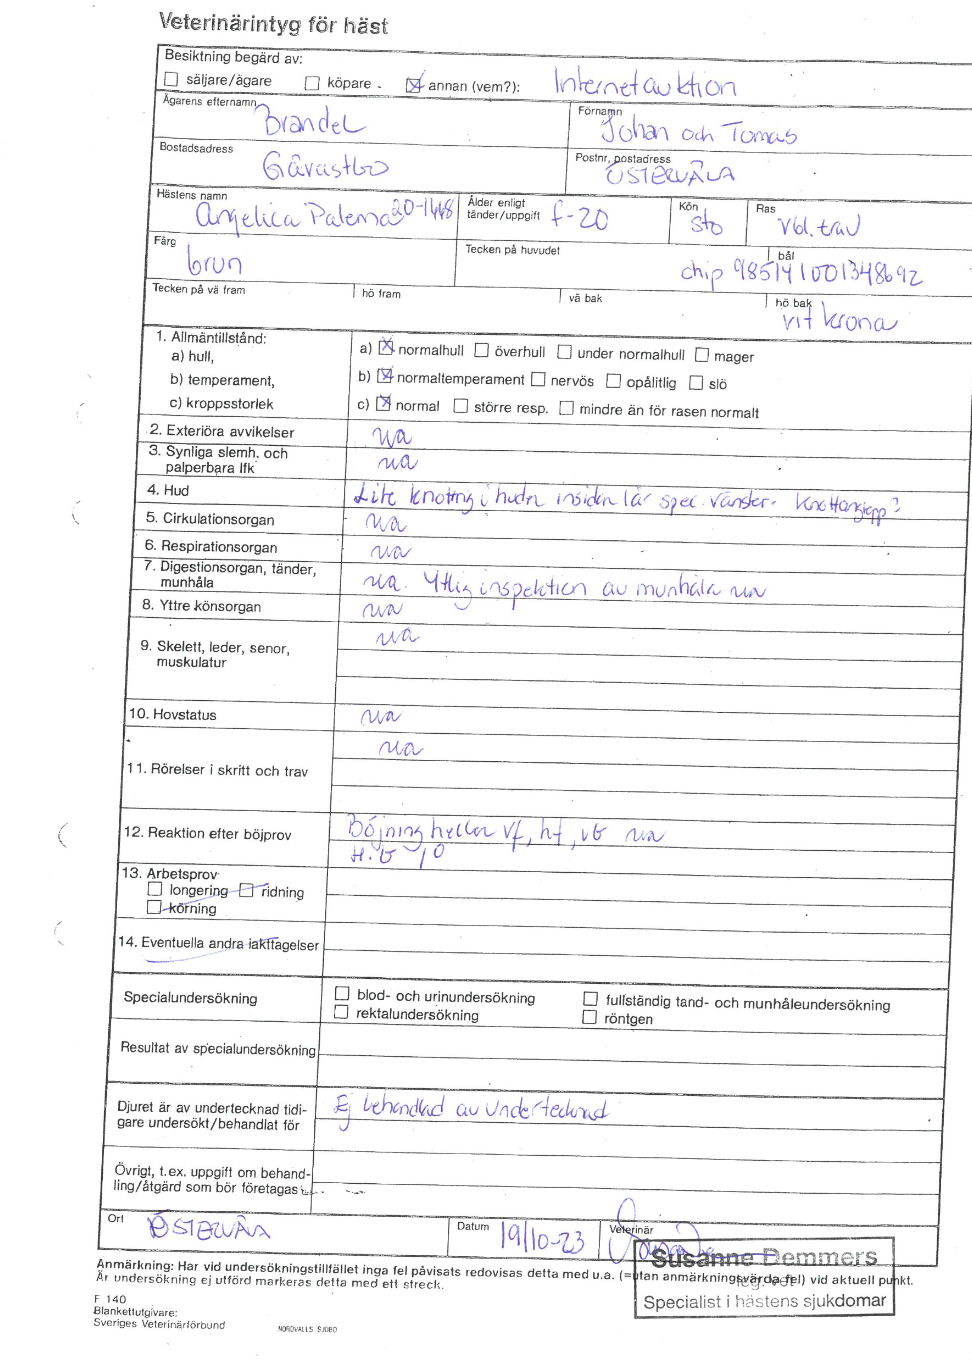 Veterinärintyg för häst
Besiktning begärd av:
säljare/ägare köpare annan (vem?): Internetauktion
Ägarens efternamn Förnamn
Brandel Johan och Tomas
Bostadsadress Postnr, postadress
Gåvastbo ÖSTERVÅLA
Hästens namn Ålder enligt tänder/uppgift Kön Ras
Angelica Palema 20-1468 f-20 sto vbl. trav
Färg Tecken på huvudet bål
brun chip 985141001348692
Tecken på vä fram hö fram vä bak hö bak
vit krona
1. Allmäntillstånd:
a) hull, a) normalhull överhull under normalhull mager
b) temperament, b) normaltemperament nervös opålitlig slö
c) kroppsstorlek c) normal större resp. mindre än för rasen normalt
2. Exteriöra avvikelser ua
3. Synliga slemh. och
palperbara lfk ua
4. Hud Lite knottrig i huden insidan lår spec. vänster. Knottangrepp?
5. Cirkulationsorgan ua
6. Respirationsorgan ua
7. Digestionsorgan, tänder,
munhåla ua. Ytlig inspektion av munhåla ua
8. Yttre könsorgan ua
9. Skelett, leder, senor,
muskulatur ua
10. Hovstatus ua
11. Rörelser i skritt och trav ua
12. Reaktion efter böjprov Böjning hela vf, hf, vb ua
H.b
13. Arbetsprov
longering ridning
körning
14. Eventuella andra iakttagelser
Specialundersökning blod- och urinundersökning fullständig tand- och munhåleundersökning
rektalundersökning röntgen
Resultat av specialundersökning
Djuret är av undertecknad tidi-
gare undersökt/behandlat för Ej behandlad av undertecknad
Övrigt, t.ex. uppgift om behand-
ling/åtgärd som bör företagas
Ort Datum Veterinär
ÖSTERVÅLA 19/10-23
Susanne Demmers
leg. vet
Specialist i hästens sjukdomar
Anmärkning: Har vid undersökningstillfället inga fel påvisats redovisas detta med u.a. (=utan anmärkningsvärda fel) vid aktuell punkt.
Är undersökning ej utförd markeras detta med ett streck.
F 140
Blankettutgivare:
Sveriges Veterinärförbund
NORDVALLS SJÖBO